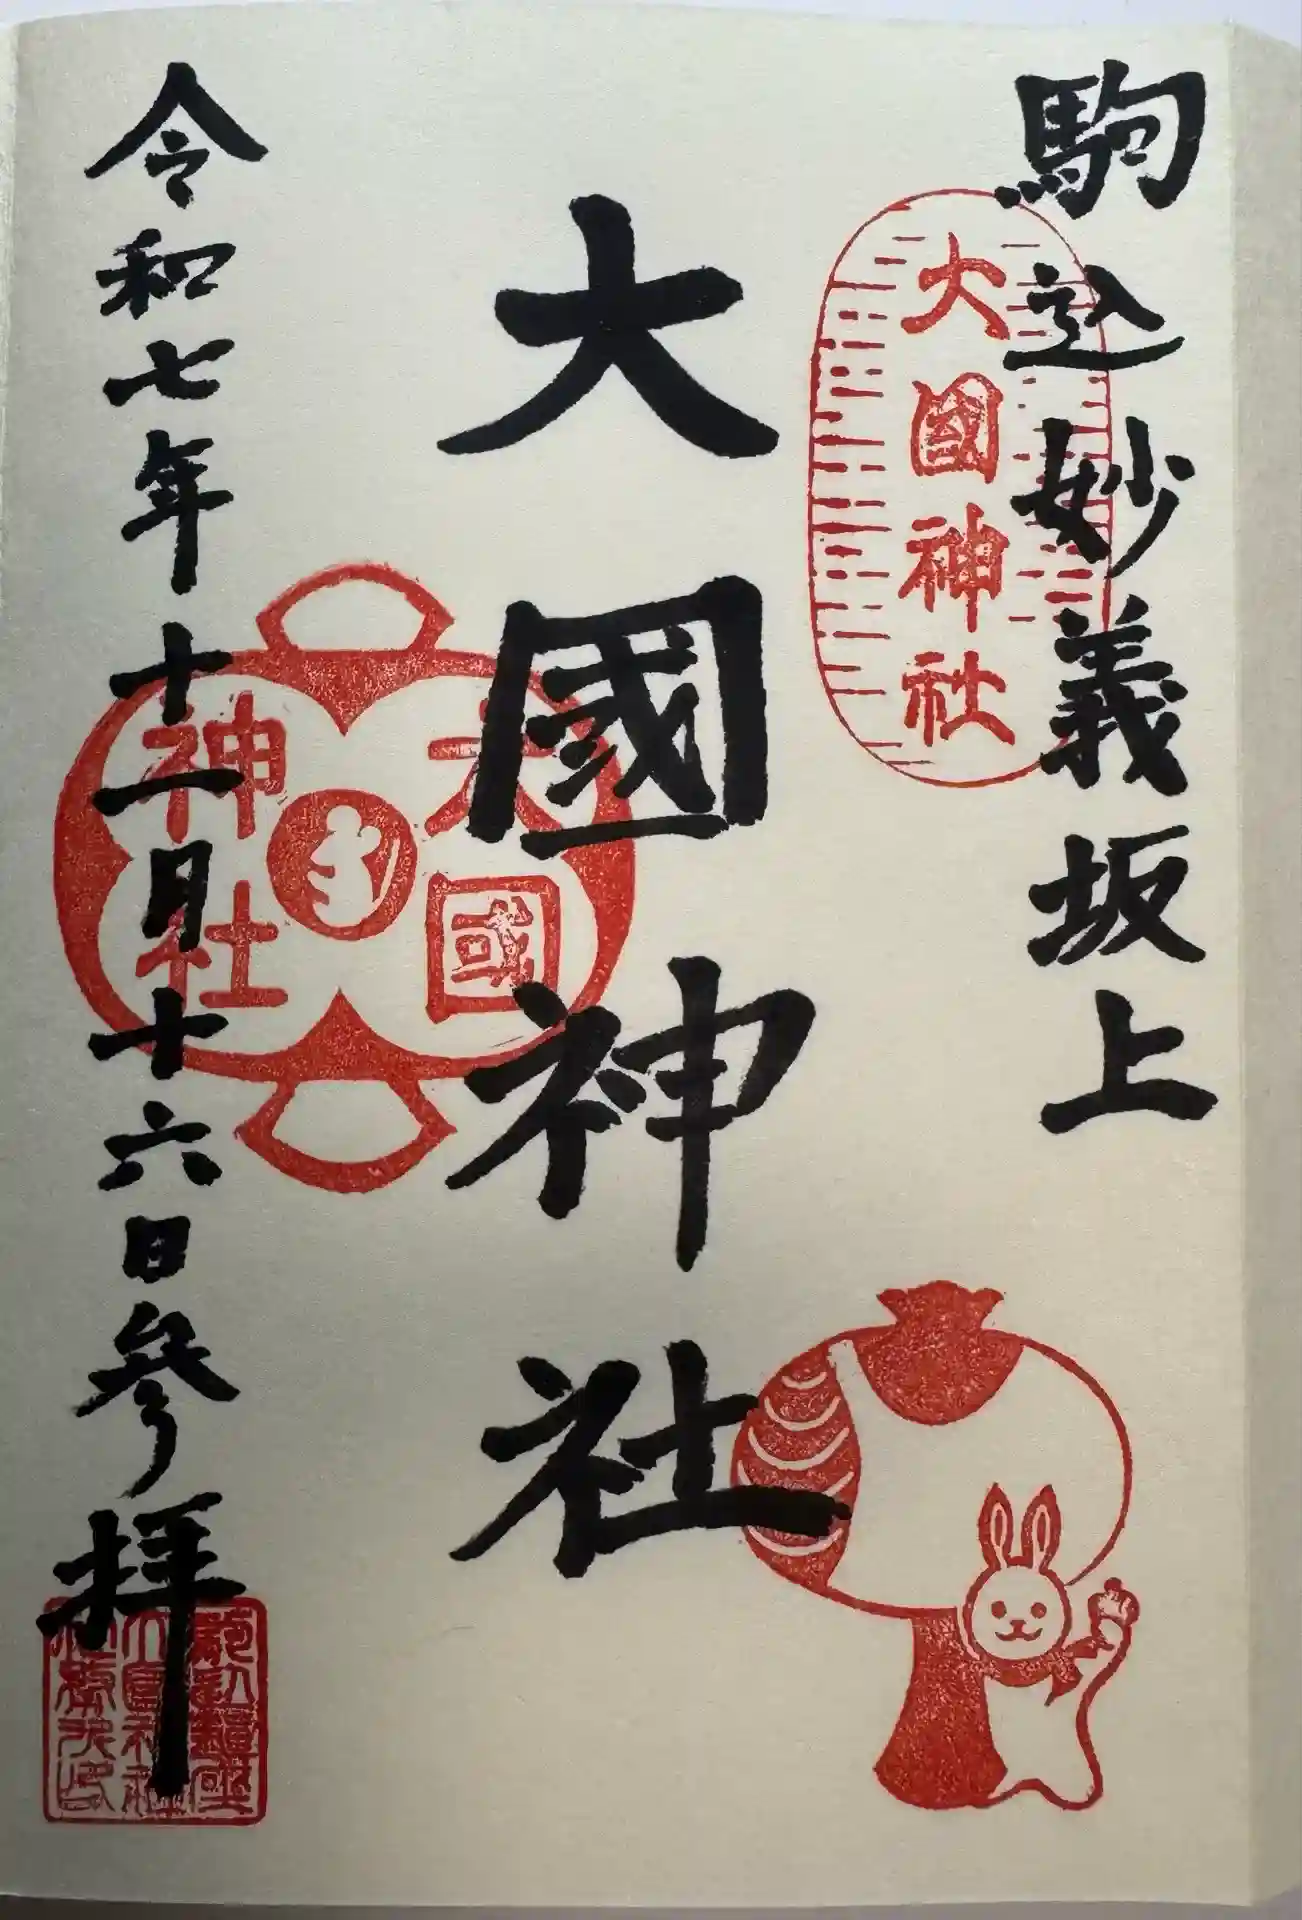 駒込妙義坂上
大國神社
大國神社
大國
神社
令和七年十一月十六日参拝